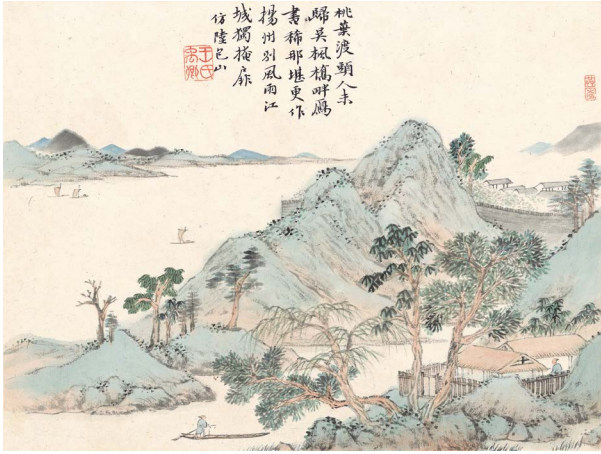 桃葉渡頭人未
歸吴楓橋畔鴈
書稀那堪更作
揚州別風雨江
城獨掩扉
仿陸包山
王氏
禹卿